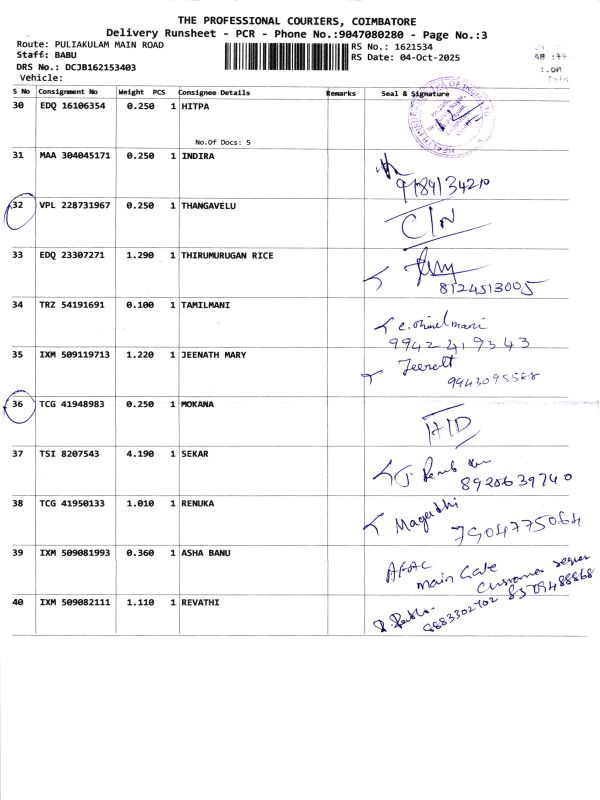 THE PROFESSIONAL COURIERS, COIMBATORE
Delivery Runsheet - PCR - Phone No.:9047080280 - Page No.:3
Route: PULIAKULAM MAIN ROAD RS No.: 1621534
Staff: BABU RS Date: 04-Oct-2025
DRS No.: DCJB162153403
Vehicle:
S No Consignment No Weight PCS Consignee Details Remarks Seal & Signature
30 EDQ 16106354 0.250 1 HITPA
No.Of Docs: 5
31 MAA 304045171 0.250 1 INDIRA
9189134210
32 VPL 228731967 0.250 1 THANGAVELU
C/N
33 EDQ 23307271 1.290 1 THIRUMURUGAN RICE
8124513005
34 TRZ 54191691 0.100 1 TAMILMANI
9942419343
35 IXM 509119713 1.220 1 JEENATH MARY
9943095568
36 TCG 41948983 0.250 1 MOKANA
H/D
37 TSI 8207543 4.190 1 SEKAR
8920639740
38 TCG 41950133 1.010 1 RENUKA
Magadhi
7904775064
39 IXM 509081993 0.360 1 ASHA BANU
main Gate
8509488868
40 IXM 509082111 1.110 1 REVATHI
8883302702